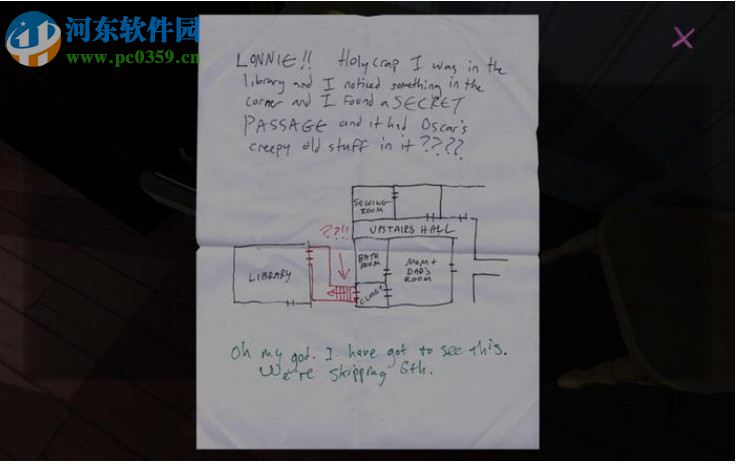 河东软件园
www.pc0359.cn
LONNIE!! Holy crap I was in the
library and I noticed something in the
corner and I found a SECRET
PASSAGE and it had Oscar's
creepy old stuff in it????
SEWING
ROOM
UPSTAIRS HALL
??!!
LIBRARY
BATH
ROOM
MOM +
DAD'S
ROOM
CLOSET
Oh my god. I have got to see this.
We're skipping 6th.